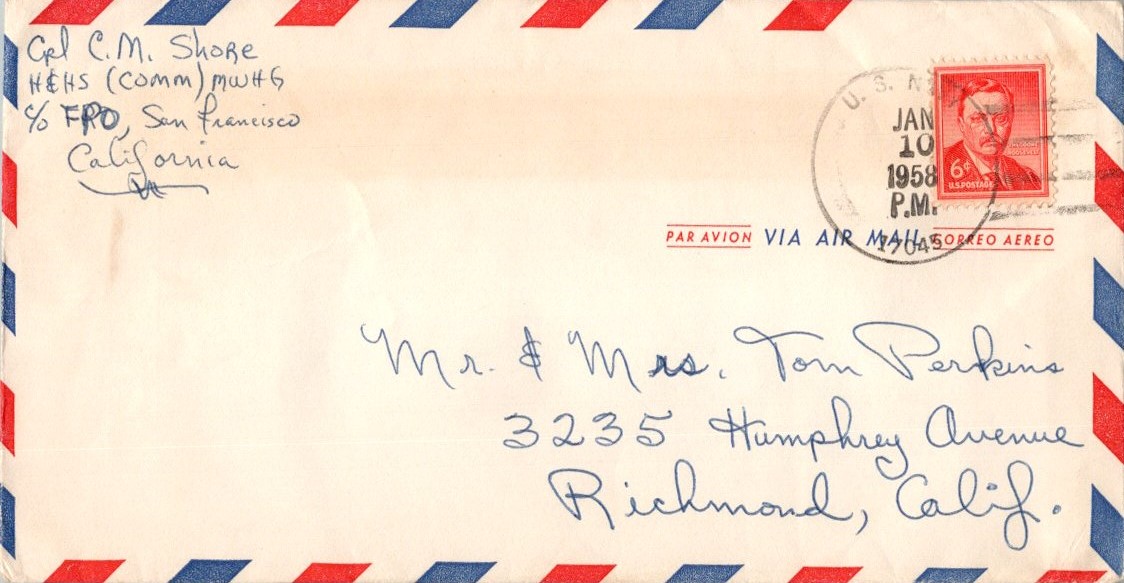 Cpl C.M. Shore
H&HS (COMM) MWHG
c/o FPO, San Francisco
California
U. S. N
JAN
10
1958
P.M.
17045
6¢
U.S. POSTAGE
PAR AVION VIA AIR MAIL CORREO AEREO
Mr. & Mrs. Tom Perkins
3235 Humphrey Avenue
Richmond, Calif.